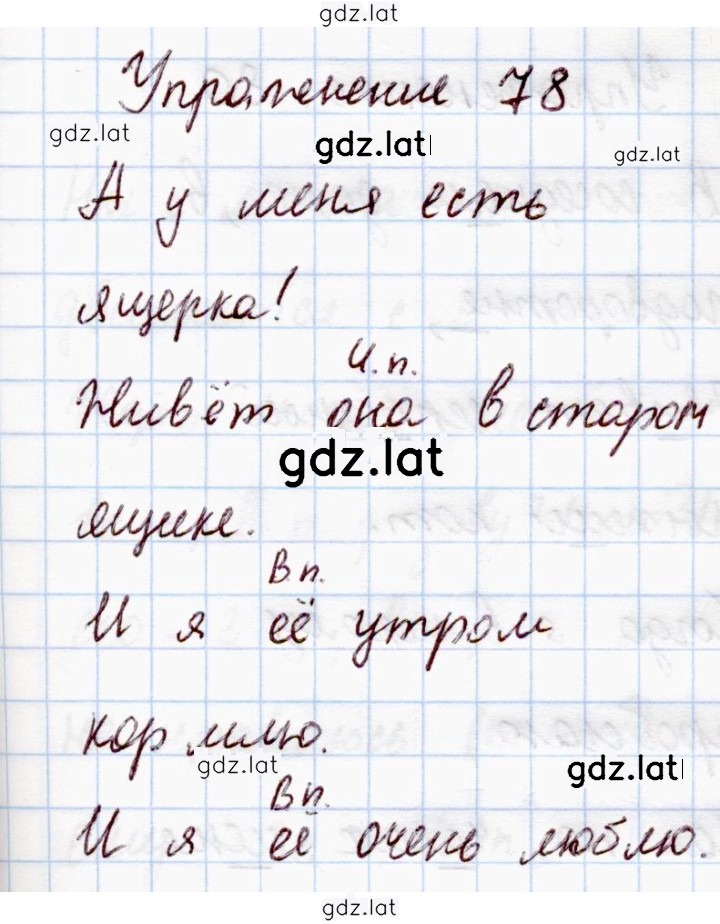 gdz.lat
Упражнение 78
gdz.lat
gdz.lat
gdz.lat
А у меня есть
ящерка!
И.п.
Живёт она в старом
gdz.lat
ящике.
В.п.
И я её утром
кормлю.
gdz.lat
gdz.lat
В.п.
И я её очень люблю.
gdz.lat